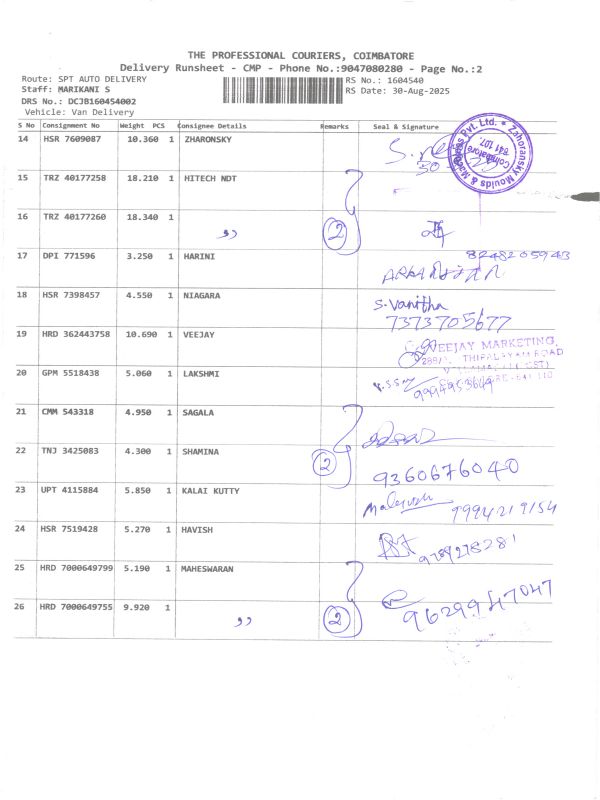 THE PROFESSIONAL COURIERS, COIMBATORE
Delivery Runsheet - CMP - Phone No.:9047080280 - Page No.:2
Route: SPT AUTO DELIVERY RS No.: 1604540
Staff: MARIKANI S RS Date: 30-Aug-2025
DRS No.: DCJB160454002
Vehicle: Van Delivery
S No Consignment No Weight PCS Consignee Details Remarks Seal & Signature
14 HSR 7609087 10.360 1 ZHARONSKY
Zahoransky Moulds & Machines Pvt. Ltd. Coimbatore 641 107.
15 TRZ 40177258 18.210 1 HITECH NDT
16 TRZ 40177260 18.340 1 ,, 2
17 DPI 771596 3.250 1 HARINI 8248205943
18 HSR 7398457 4.550 1 NIAGARA S. Vanitha
7373705677
19 HRD 362443758 10.690 1 VEEJAY VEEJAY MARKETING,
ROAD
20 GPM 5518438 5.060 1 LAKSHMI 9994953649
21 CMM 543318 4.950 1 SAGALA
22 TNJ 3425083 4.300 1 SHAMINA 2 9360676040
23 UPT 4115884 5.850 1 KALAI KUTTY 9994219154
24 HSR 7519428 5.270 1 HAVISH
25 HRD 7000649799 5.190 1 MAHESWARAN
26 HRD 7000649755 9.920 1 ,, 2 9629947047